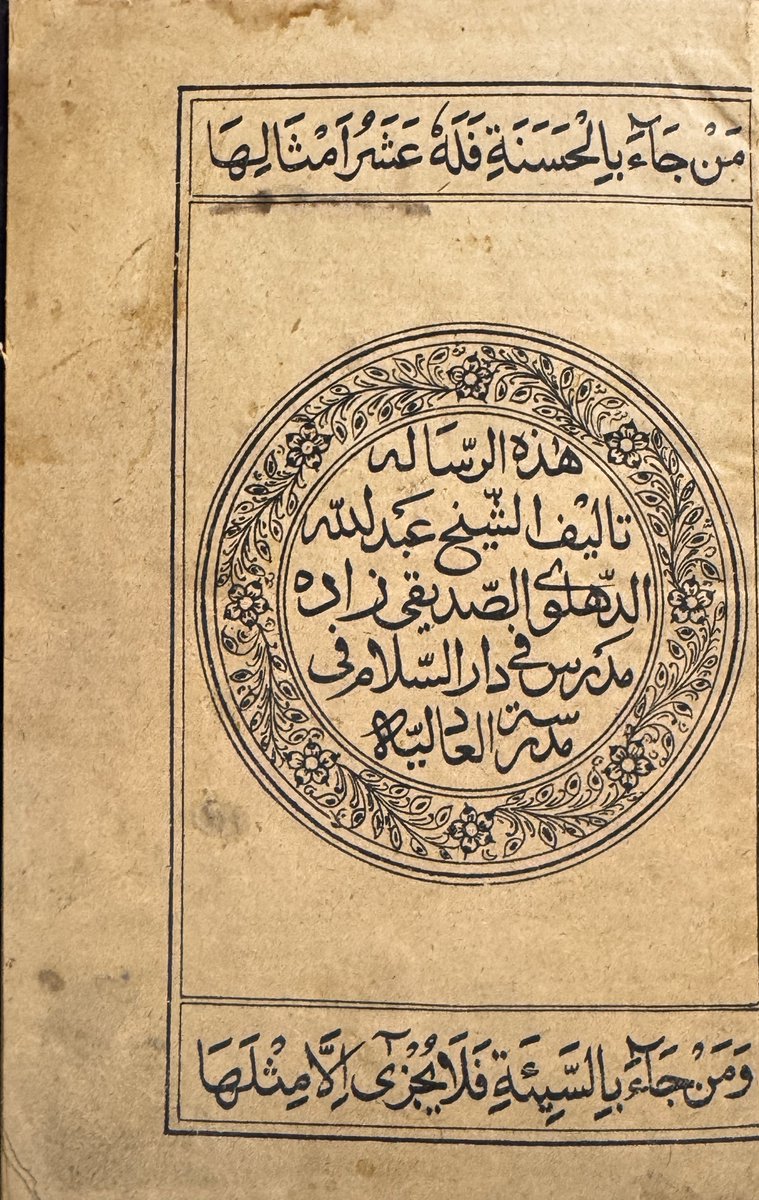 مَنْ جَاءَ بِالْحَسَنَةِ فَلَهُ عَشَرُ اَمْثَالِهَا
هٰذه الرسّاله
تاليْف الشّيخ عَبْد الله
الدّهلوى الصّديقى زاده
مدَرس فى دار السّلام فى
مدرسة العاليّه
وَمَنْ جَاءَ بِالسَّيِئَةِ فَلَا يُجْزٓى اِلَّا مِثْلَهَا